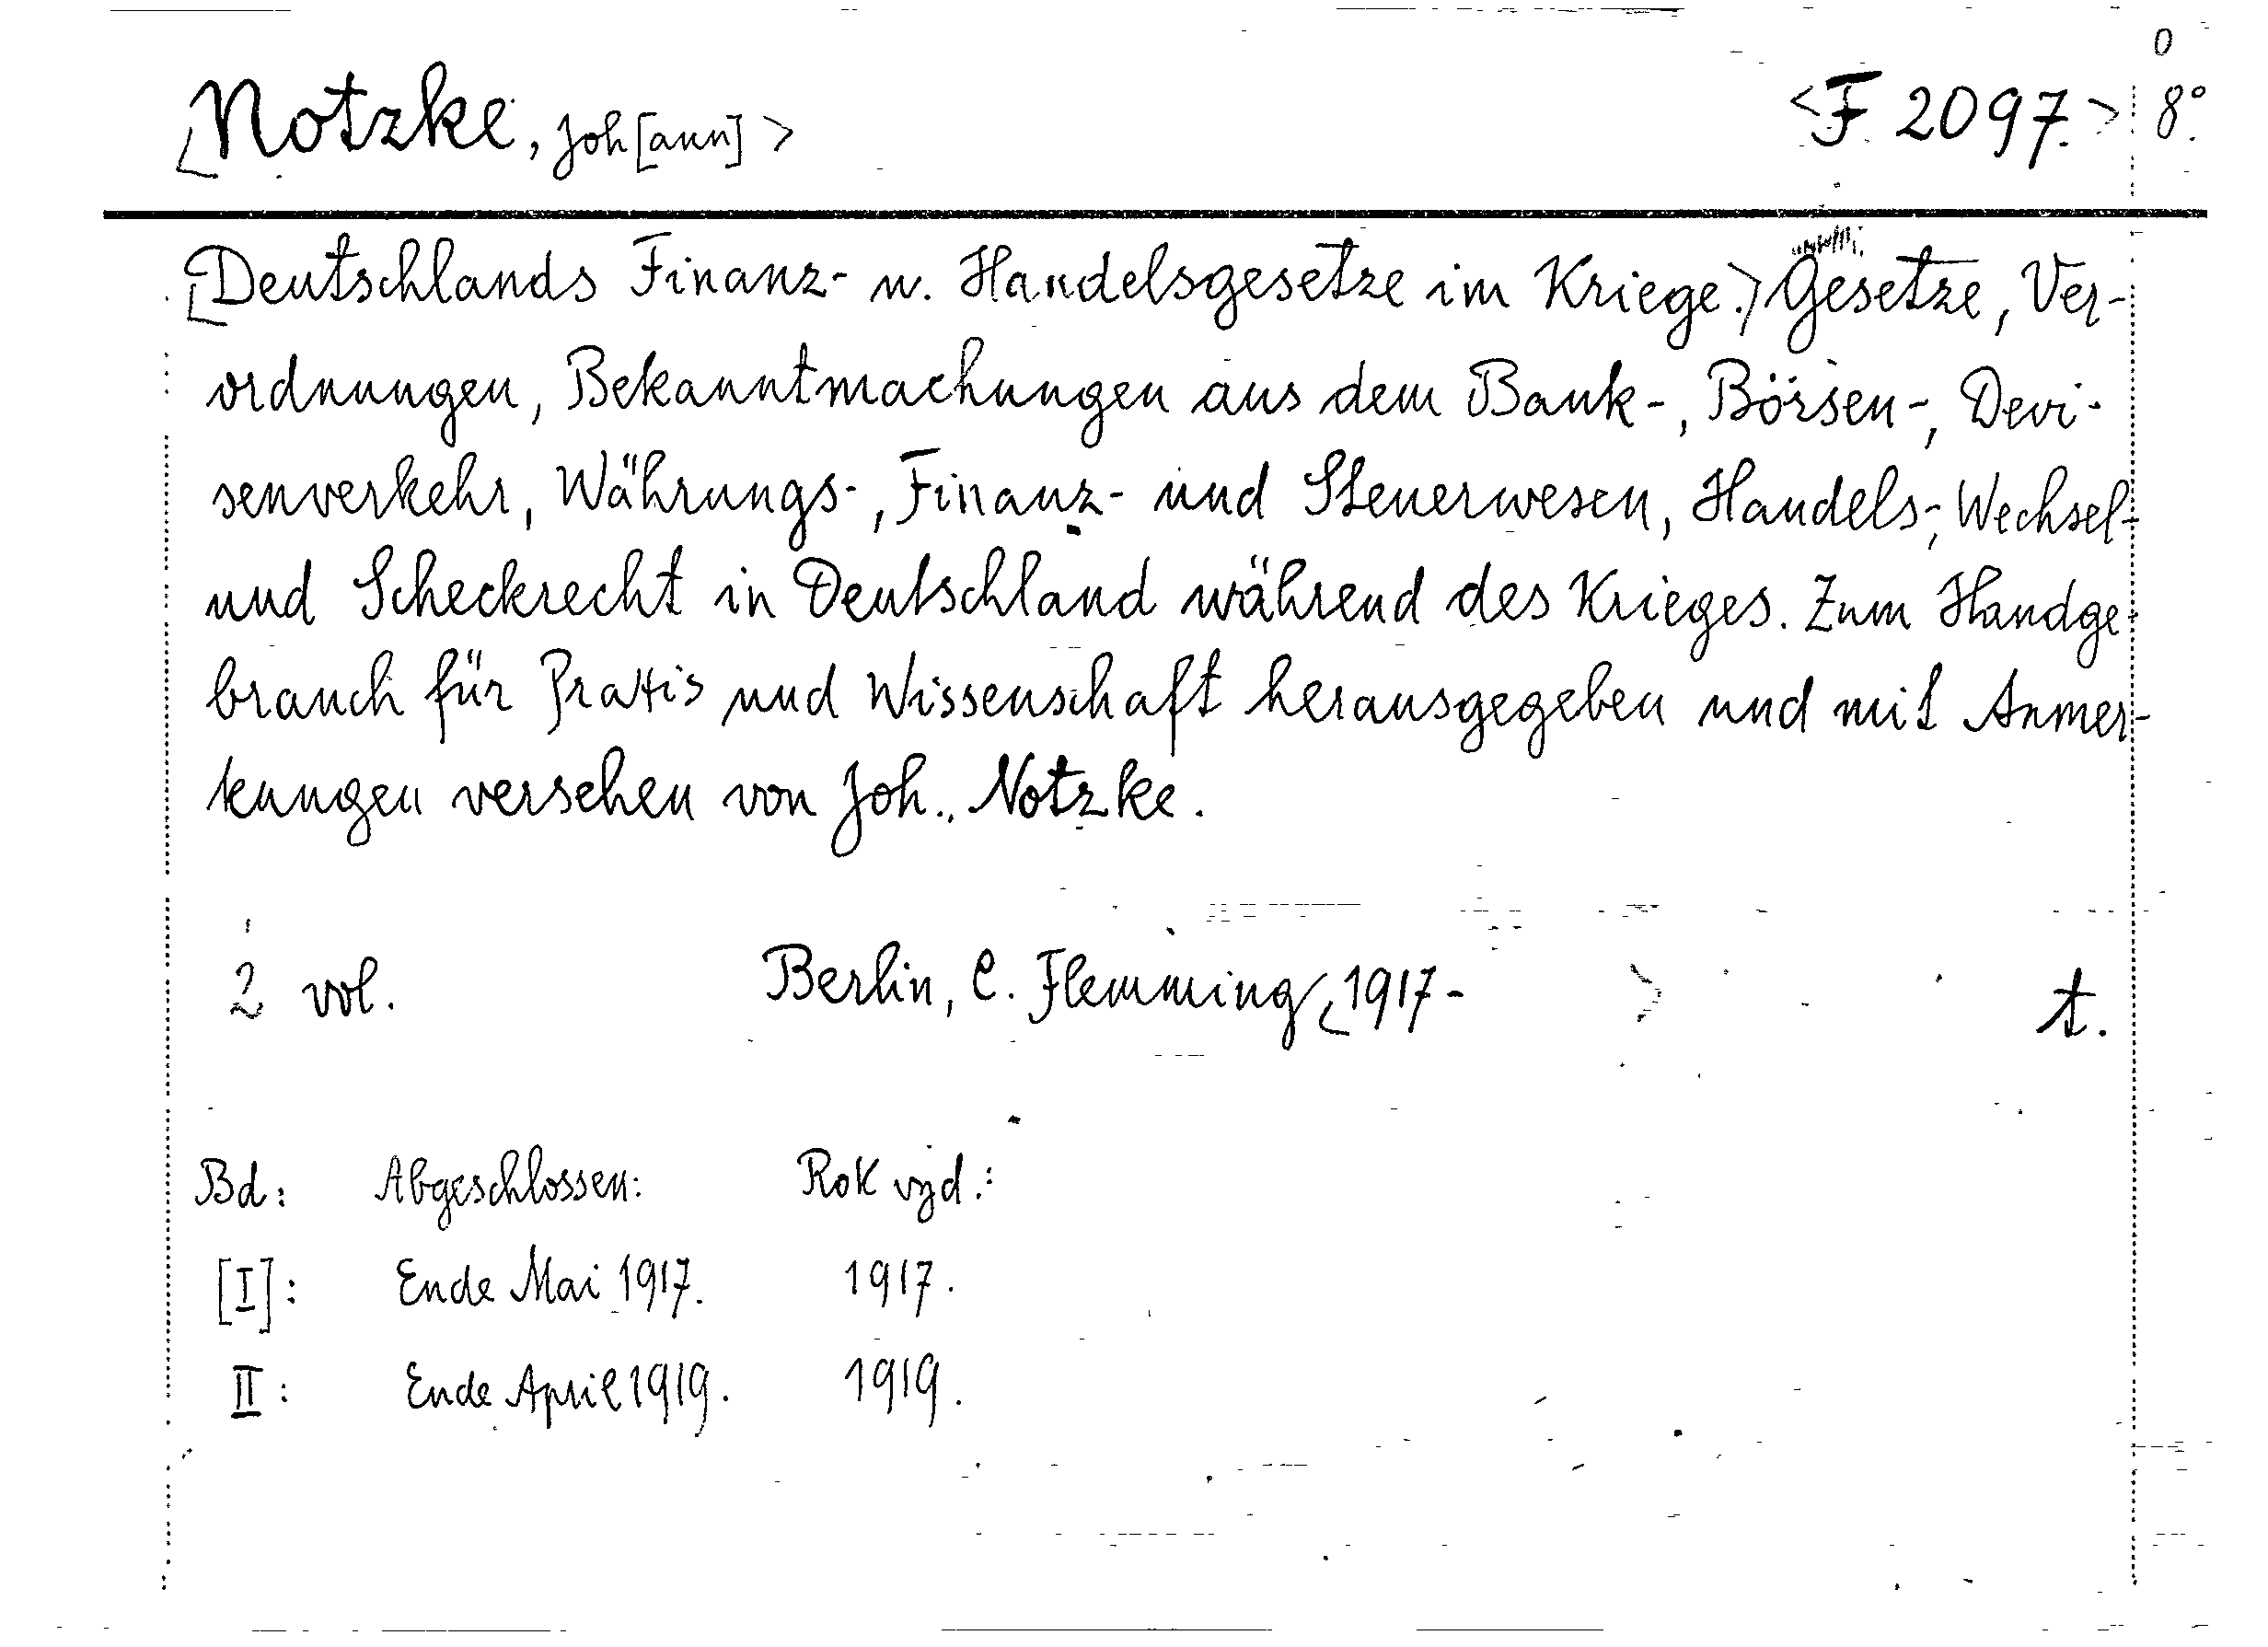 <Notzke, Joh[ann]> <F 2097.> 8°. 0
<Deutschlands Finanz- u. Handelsgesetze im Kriege.> Gesetze, Ver-
ordnungen, Bekanntmachungen aus dem Bank-, Börsen-, Devi-
senverkehr, Währungs-, Finanz- und Steuerwesen, Handels-, Wechsel-
und Scheckrecht in Deutschland während des Krieges. Zum Handge-
brauch für Praxis und Wissenschaft herausgegeben und mit Anmer-
kungen versehen von Joh. Notzke.
2 vol. Berlin, C. Flemming <1917- > t.
Bd: Abgeschlossen: RoK vgd.:
[I]: Ende Mai 1917. 1917.
II: Ende April 1919. 1919.